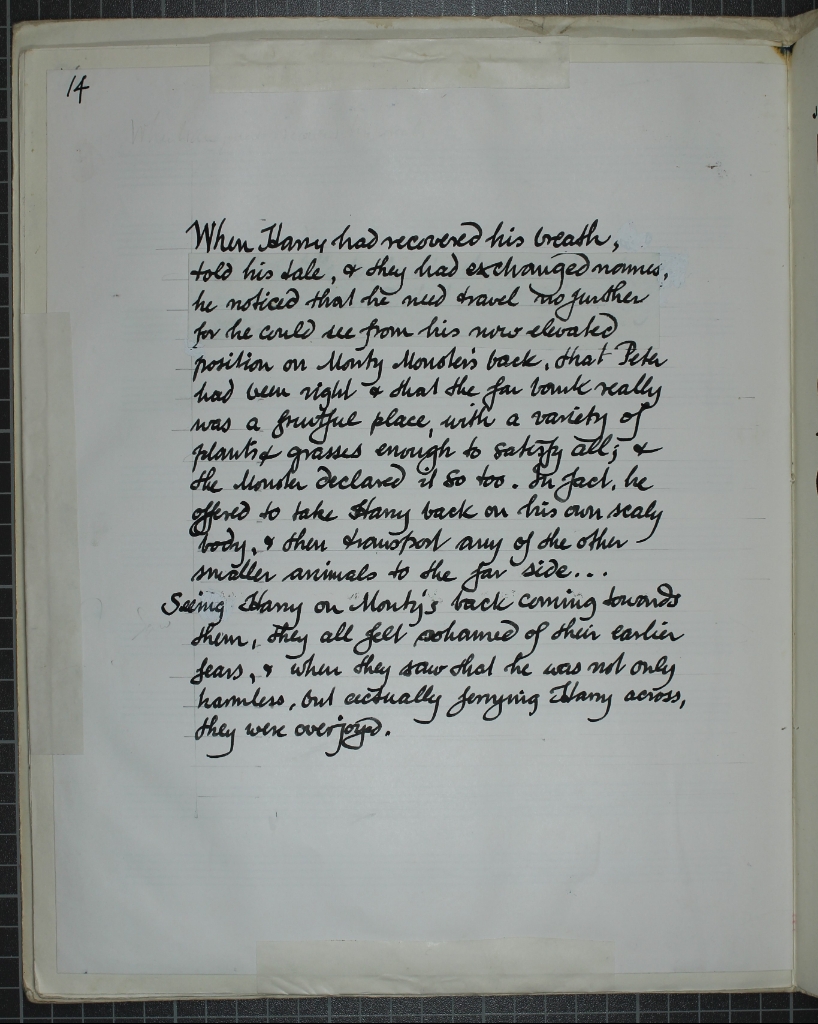 14
When Harry had recovered his breath,
told his tale, & they had exchanged names,
he noticed that he need travel no further
for he could see from his now elevated
position on Monty Monster's back, that Peter
had been right & that the far bank really
was a fruitful place, with a variety of
plants & grasses enough to satisfy all; &
the Monster declared it so too. In fact, he
offered to take Harry back on his own scaly
body, & then transport any of the other
smaller animals to the far side...
Seeing Harry on Monty's back coming towards
them, they all felt ashamed of their earlier
fears, & when they saw that he was not only
harmless, but actually ferrying Harry across,
they were overjoyed.